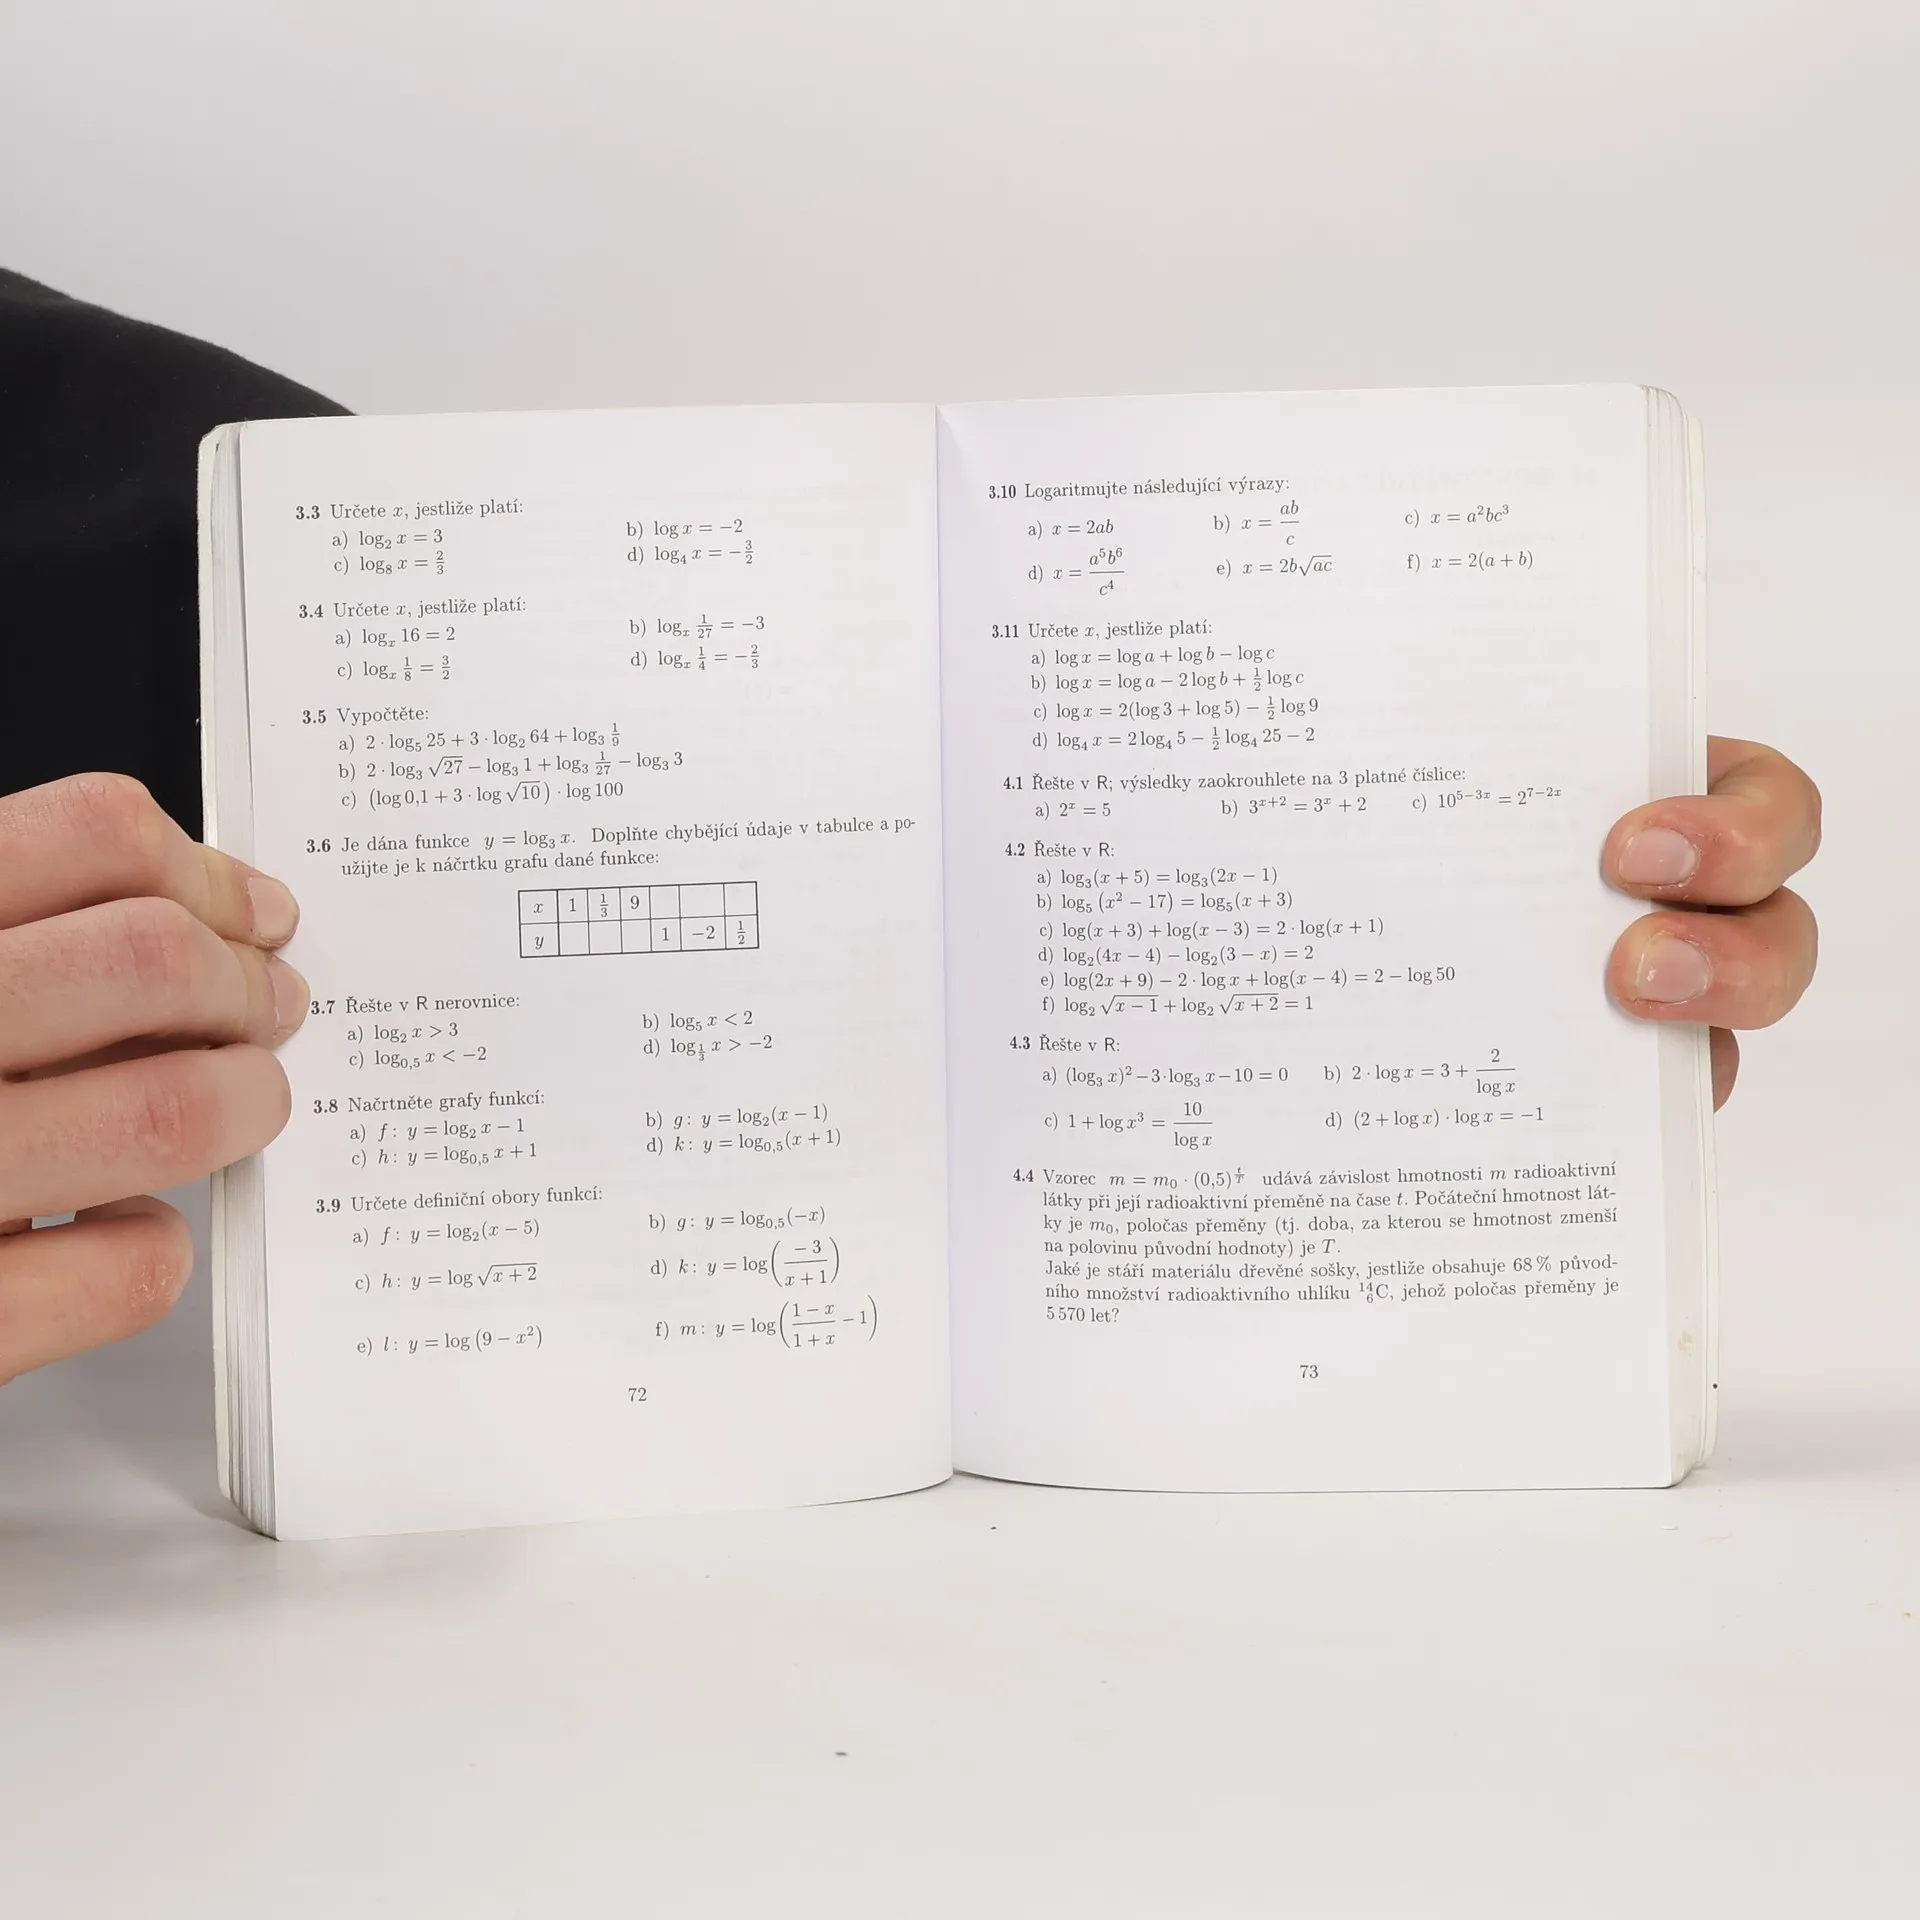 3.3 Určete x, jestliže platí:
a) log₂ x = 3 b) log x = −2
c) log₈ x = 2/3 d) log₄ x = −3/2
3.4 Určete x, jestliže platí:
a) logₓ 16 = 2 b) logₓ 1/27 = −3
c) logₓ 1/8 = 3/2 d) logₓ 1/4 = −2/3
3.5 Vypočtěte:
a) 2 · log₅ 25 + 3 · log₂ 64 + log₃ 1/9
b) 2 · log₃ √27 − log₃ 1 + log₃ 1/27 − log₃ 3
c) (log 0,1 + 3 · log √10) · log 100
3.6 Je dána funkce y = log₃ x. Doplňte chybějící údaje v tabulce a po-
užijte je k náčrtku grafu dané funkce:
x 1 1/3 9
y 1 −2 1/2
3.7 Řešte v R nerovnice:
a) log₂ x > 3 b) log₅ x < 2
c) log₀,₅ x < −2 d) log_{1/3} x > −2
3.8 Načrtněte grafy funkcí:
a) f: y = log₂ x − 1 b) g: y = log₂(x − 1)
c) h: y = log₀,₅ x + 1 d) k: y = log₀,₅(x + 1)
3.9 Určete definiční obory funkcí:
a) f: y = log₂(x − 5) b) g: y = log₀,₅(−x)
c) h: y = log √(x + 2) d) k: y = log(−3/(x + 1))
e) l: y = log (9 − x²) f) m: y = log((1 − x)/(1 + x) − 1)
72
3.10 Logaritmujte následující výrazy:
a) x = 2ab b) x = ab/c c) x = a²bc³
d) x = a⁵b⁶/c⁴ e) x = 2b√(ac) f) x = 2(a + b)
3.11 Určete x, jestliže platí:
a) log x = log a + log b − log c
b) log x = log a − 2 log b + 1/2 log c
c) log x = 2(log 3 + log 5) − 1/2 log 9
d) log₄ x = 2 log₄ 5 − 1/2 log₄ 25 − 2
4.1 Řešte v R; výsledky zaokrouhlete na 3 platné číslice:
a) 2ˣ = 5 b) 3ˣ⁺² = 3ˣ + 2 c) 10⁵⁻³ˣ = 2⁷⁻²ˣ
4.2 Řešte v R:
a) log₃(x + 5) = log₃(2x − 1)
b) log₅ (x² − 17) = log₅(x + 3)
c) log(x + 3) + log(x − 3) = 2 · log(x + 1)
d) log₂(4x − 4) − log₂(3 − x) = 2
e) log(2x + 9) − 2 · log x + log(x − 4) = 2 − log 50
f) log₂ √(x − 1) + log₂ √(x + 2) = 1
4.3 Řešte v R:
a) (log₃ x)² − 3·log₃ x − 10 = 0 b) 2 · log x = 3 + 2/log x
c) 1 + log x³ = 10/log x d) (2 + log x) · log x = −1
4.4 Vzorec m = m₀ · (0,5)^{t/T} udává závislost hmotnosti m radioaktivní
látky při její radioaktivní přeměně na čase t. Počáteční hmotnost lát-
ky je m₀, poločas přeměny (tj. doba, za kterou se hmotnost zmenší
na polovinu původní hodnoty) je T.
Jaké je stáří materiálu dřevěné sošky, jestliže obsahuje 68 % původ-
ního množství radioaktivního uhlíku ¹⁴₆C, jehož poločas přeměny je
5 570 let?
73